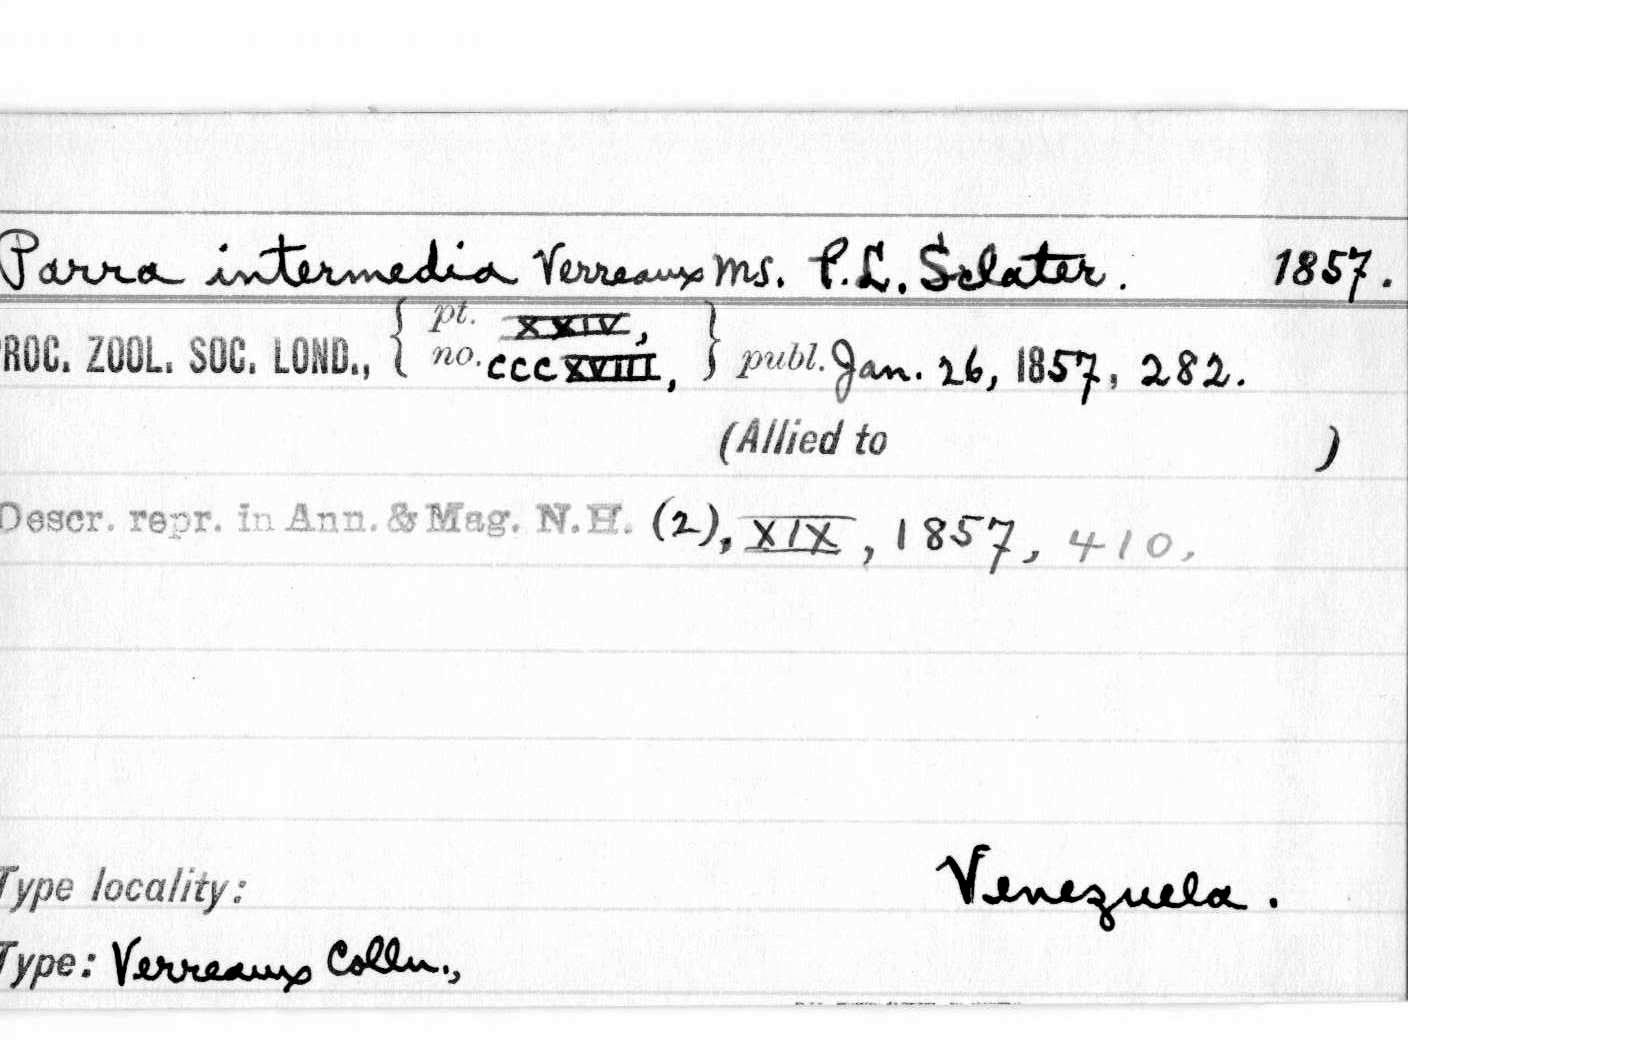 Parra intermedia Verreaux MS. P.L. Sclater. 1857.
PROC. ZOOL. SOC. LOND., { pt. XXIV, no. CCCXVIII, } publ. Jan. 26, 1857, 282.
(Allied to )
Descr. repr. in Ann. & Mag. N.H. (2), XIX, 1857, 410,
Type locality: Venezuela.
Type: Verreaux Colln.,